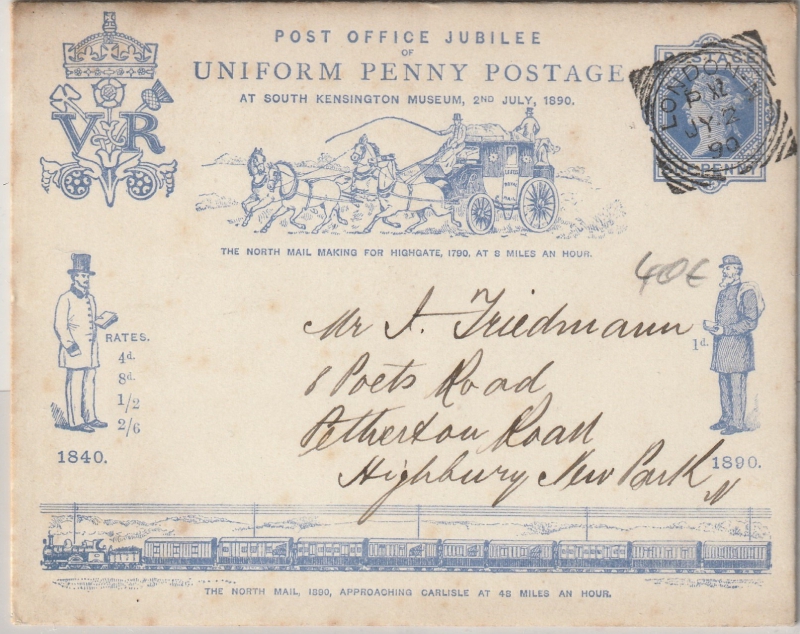 POST OFFICE JUBILEE
OF
UNIFORM PENNY POSTAGE
AT SOUTH KENSINGTON MUSEUM, 2ND JULY, 1890.
V R
POSTAGE
LONDON
JY 2
90
THE NORTH MAIL MAKING FOR HIGHGATE, 1790, AT 8 MILES AN HOUR.
40€
Mr J. Friedmann
8 Poets Road
Petherton Road
Highbury New Park
N
RATES.
4d.
8d.
1/2
2/6
1840.
1d.
1890.
THE NORTH MAIL, 1890, APPROACHING CARLISLE AT 48 MILES AN HOUR.